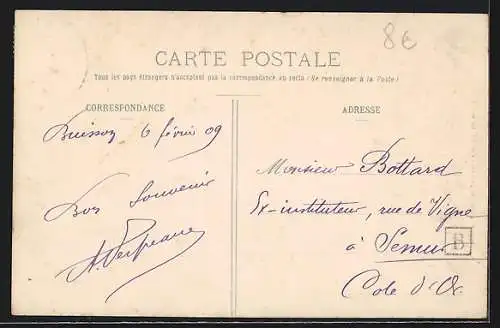 8€
CARTE POSTALE
Tous les pays étrangers n'acceptent pas la correspondance au recto (Se renseigner à la Poste)
CORRESPONDANCE
ADRESSE
Buisson 6 février 09
Bon Souvenir
Monsieur Bottard
Ex-instituteur, rue de Vigne
à Semur
B
Cote d'Or